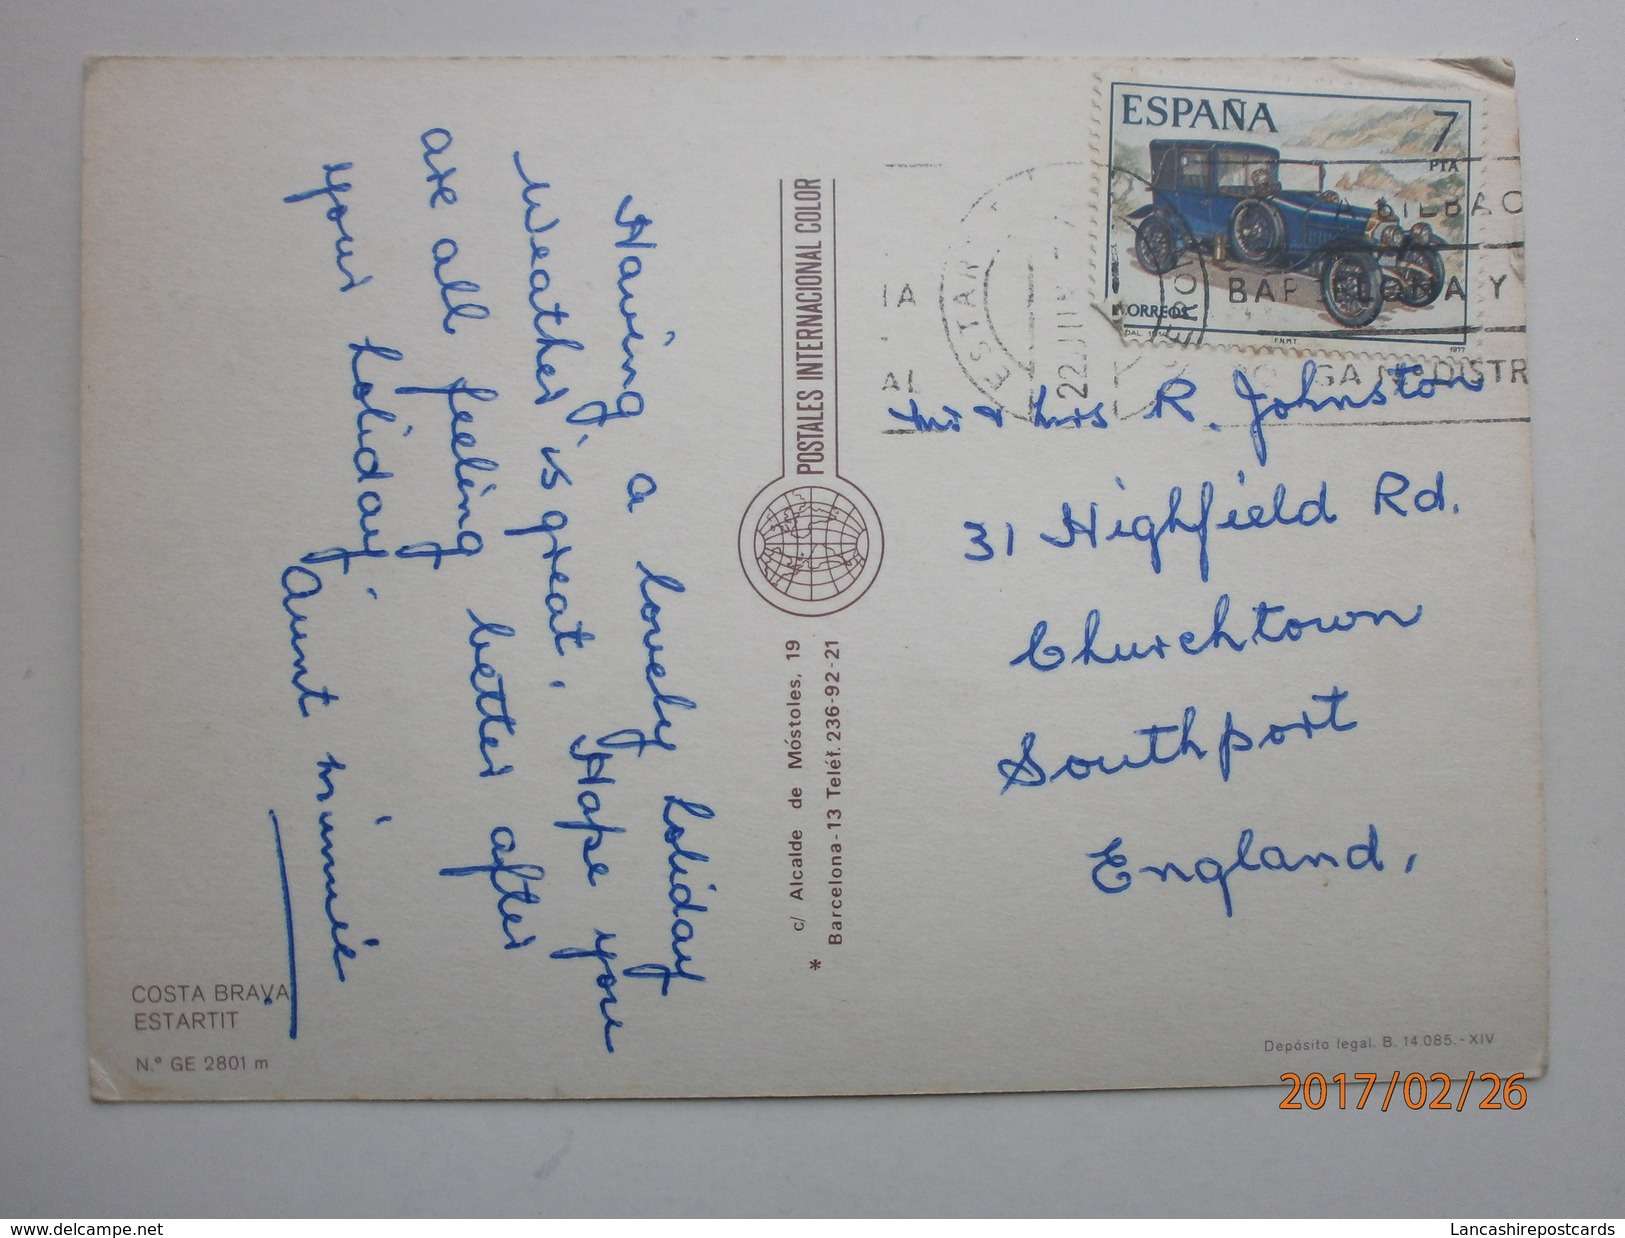 Having a lovely holiday
Weather is great. Hope you
are all feeling better after
your holiday.
Aunt Minnie
COSTA BRAVA
ESTARTIT
N.° GE 2801 m
POSTALES INTERNACIONAL COLOR
c/ Alcalde de Móstoles, 19
* Barcelona-13 Teléf. 236-92-21
ESPAÑA 7
PTA
CORREOS
F.N.M.T
1977
ESTAR
22 JUN
BILBAO
Y
DISTR
IA
AL
Mr & Mrs R. Johnston
31 Highfield Rd.
Churchtown
Southport
England,
Depósito legal. B. 14.085.-XIV
2017/02/26
www.delcampe.net
Lancashirepostcards